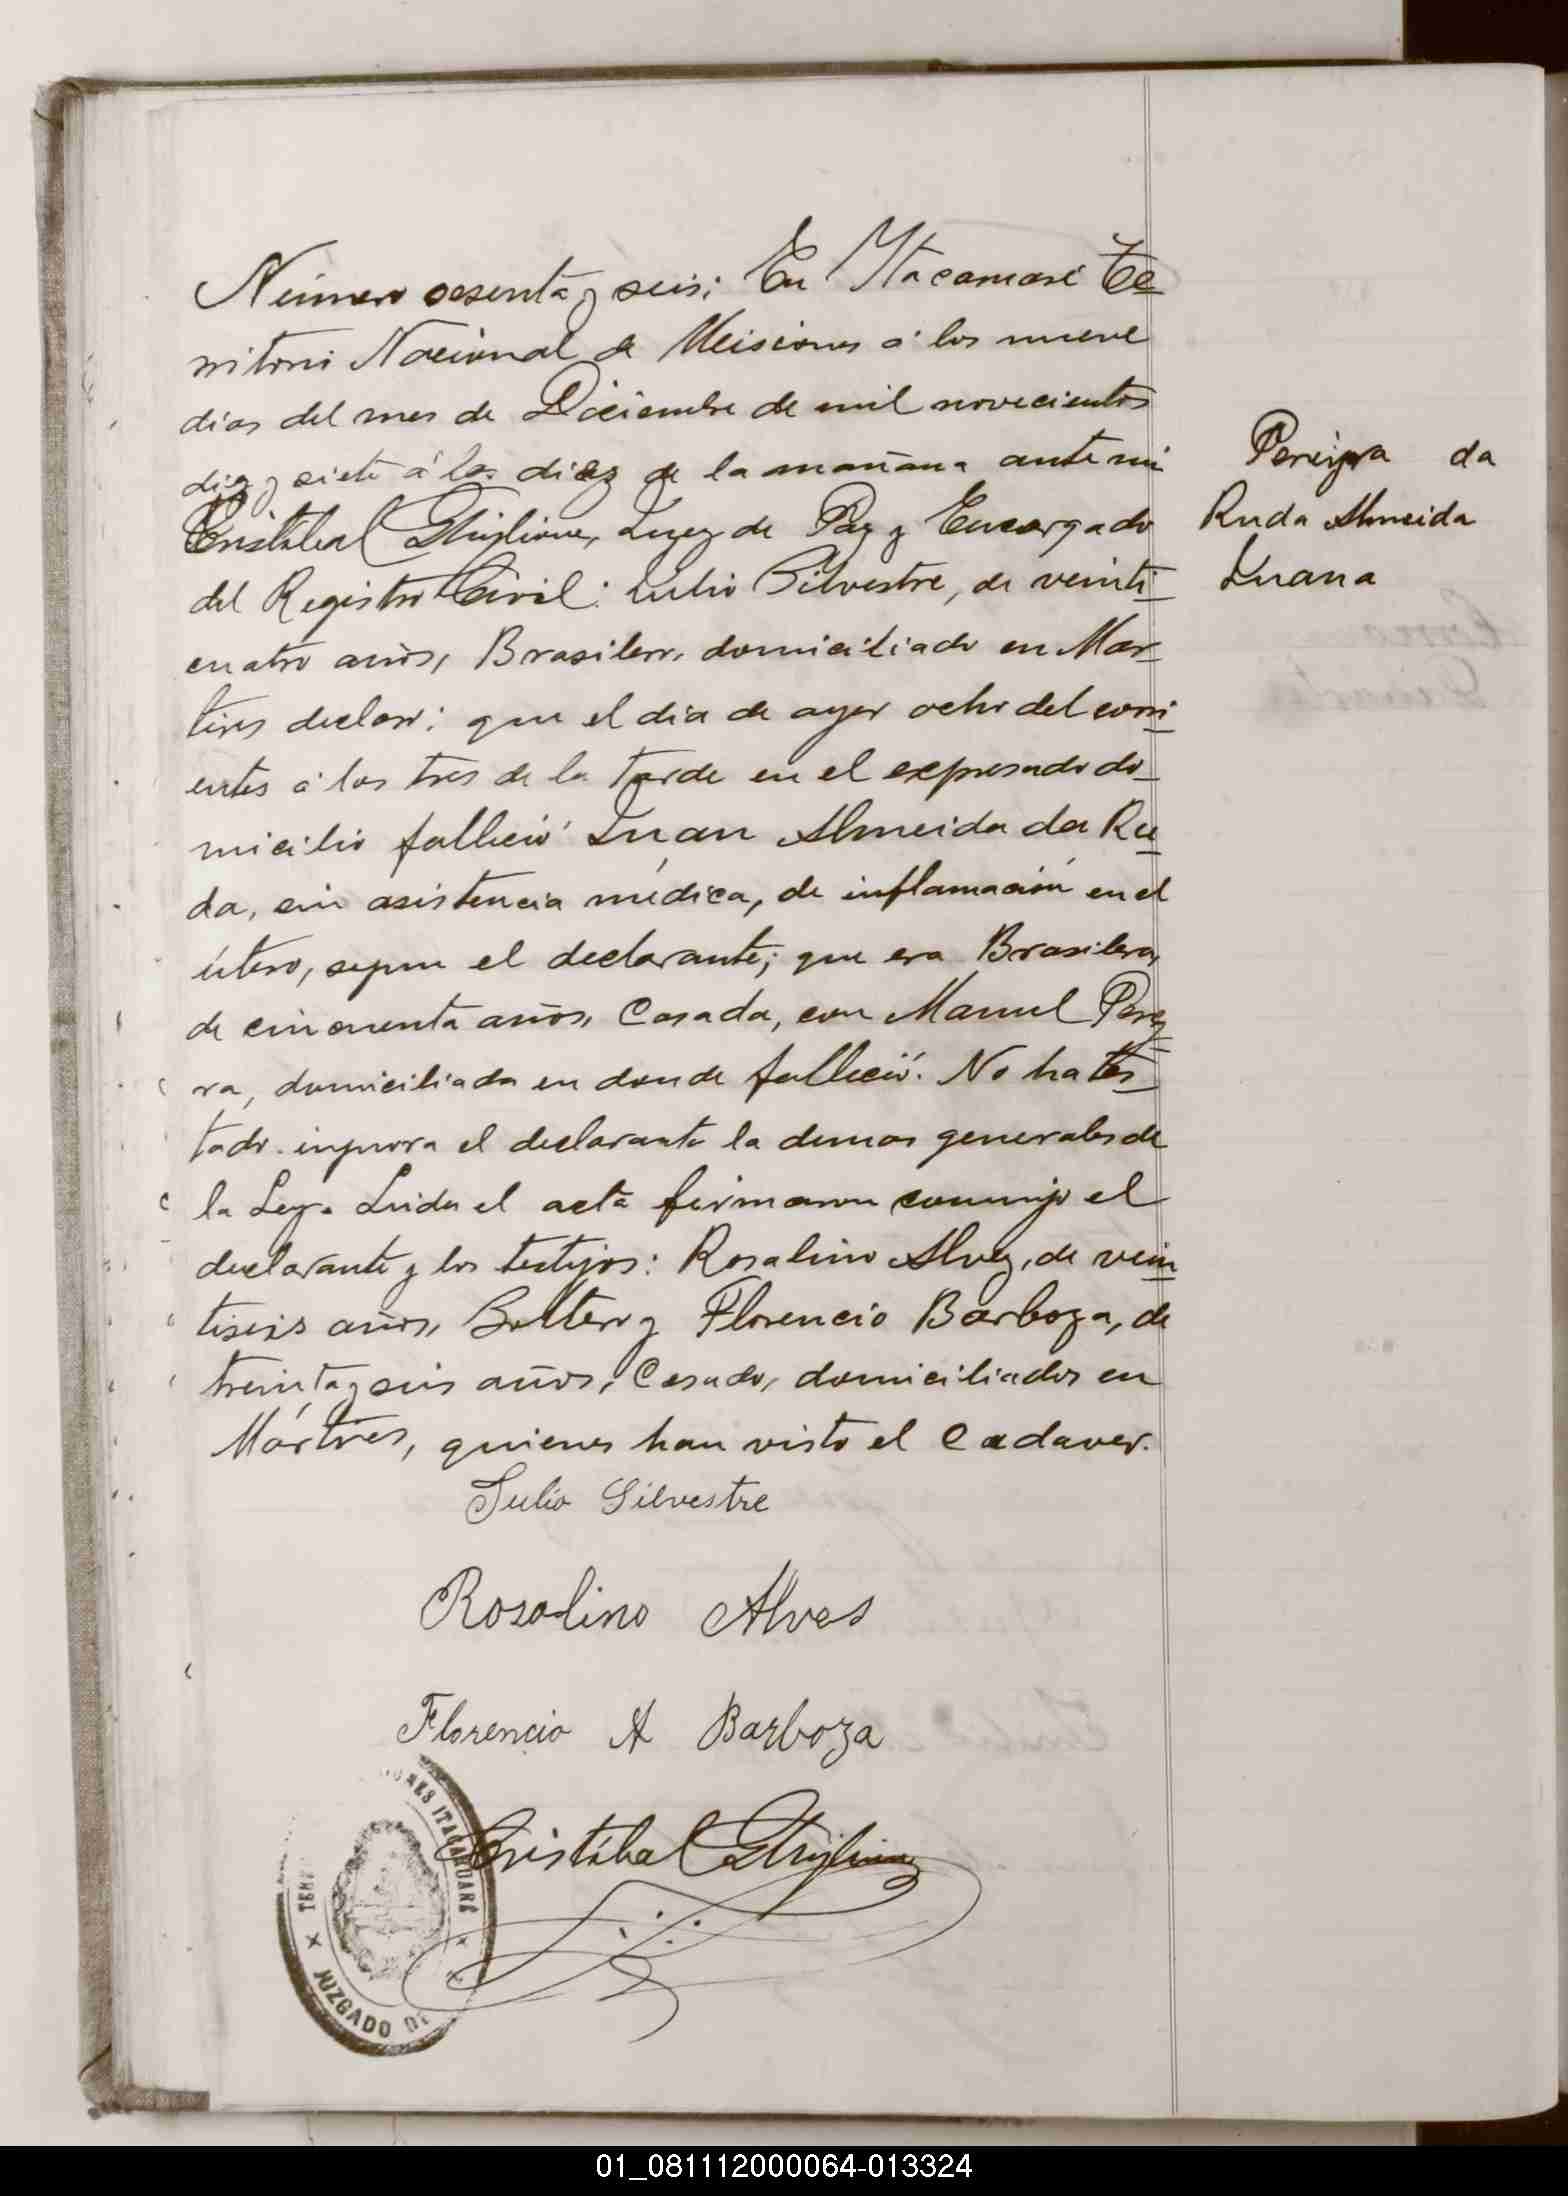 Número sesenta y seis; En Itacaruaré Te-
rritorio Nacional de Misiones á los nueve
dias del mes de Diciembre de mil novecientos
diez y siete á las diez de la mañana ante mi
Cristóbal Ghiglione, Juez de Paz y Encargado
del Registro Civil: Julio Silvestre, de veinti-
cuatro años, Brasilero, domiciliado en Mar-
tires declaró: que el dia de ayer ocho del corri-
entes á las tres de la tarde en el expresado do-
micilio falleció Juan Almeida da Ru-
da, sin asistencia médica, de inflamación en el
útero, segun el declarante; que era Brasilera,
de cincuenta años, Casada, con Manuel Perey-
ra, domiciliada en donde falleció. No ha tes-
tado. ingnora el declarante la demas generales de
la Ley. Leida el acta firmaron conmigo el
declarante y los testigos: Rosalino Alvez, de vein-
tiseis años, Soltero y Florencio Barboza, de
treinta y seis años, Casado, domiciliados en
Mártires, quienes han visto el Cadaver.
Julio Silvestre
Rosolino Alves
Florencio A Barboza
Cristóbal Ghiglione
Pereyra da
Ruda Almeida
Juana
ONES ITACARUARÉ
JUZGADO DE
01_081112000064-013324